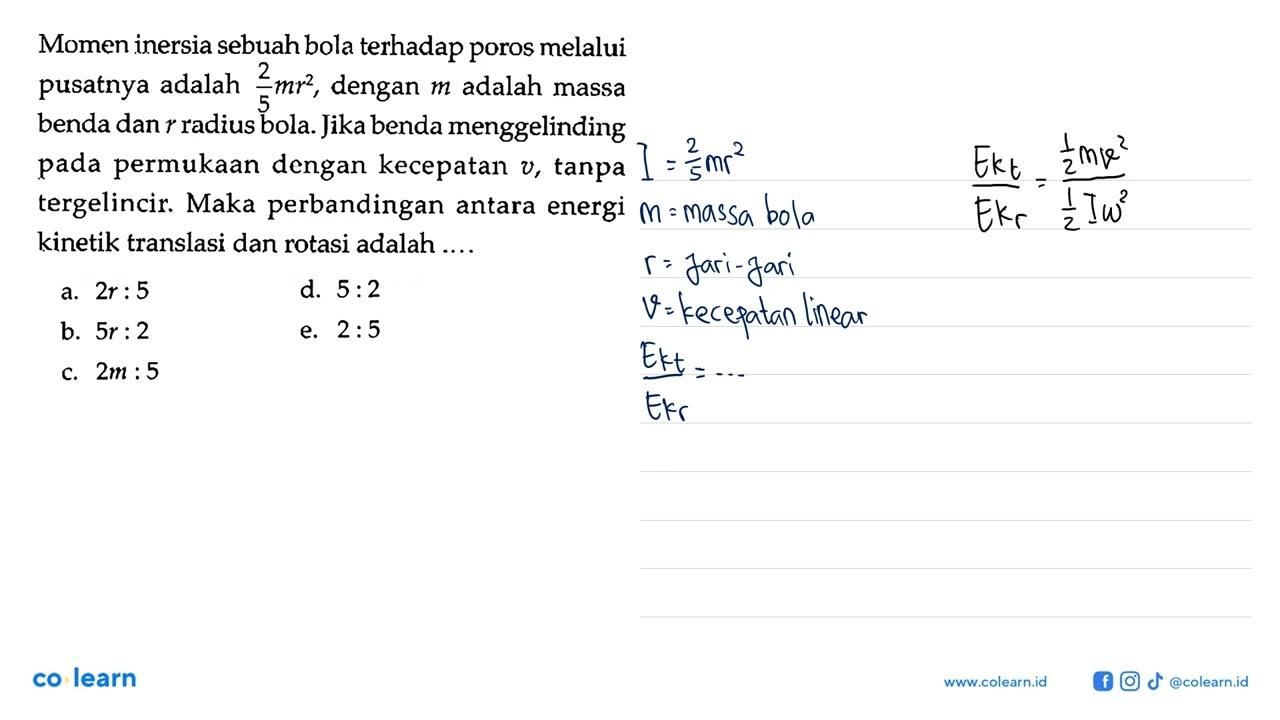 Momen inersia sebuah bola terhadap poros melalui
pusatnya adalah 2/5 mr², dengan m adalah massa
benda dan r radius bola. Jika benda menggelinding
pada permukaan dengan kecepatan v, tanpa
tergelincir. Maka perbandingan antara energi
kinetik translasi dan rotasi adalah ....
a. 2r : 5
b. 5r : 2
c. 2m : 5
d. 5 : 2
e. 2 : 5
I = 2/5 mr²
m = massa bola
r = jari-jari
v = kecepatan linear
Ekt/Ekr = ...
Ekt/Ekr = ½mv² / ½Iω²
co learn
www.colearn.id
@colearn.id